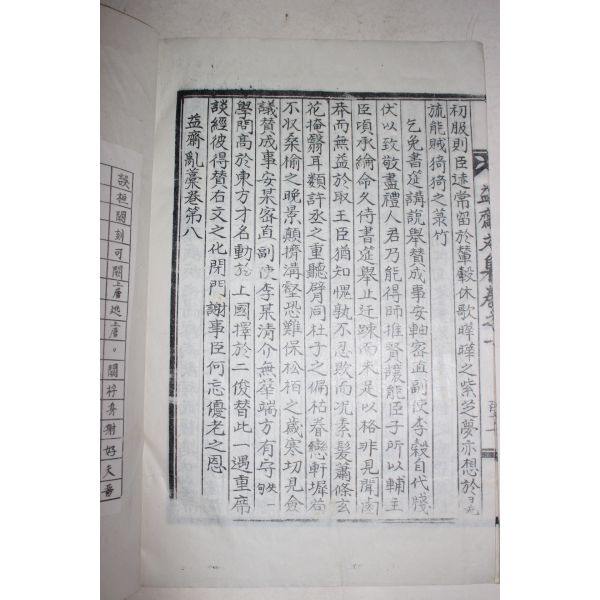 初服則臣迹常留於輦轂休歌曄曄之紫芝夢亦想於
旒能賊猗猗之菉竹
乞免書筵講說擧贊成事安軸密直副使李穀自代牋
伏以致敬盡禮人君乃能得師推賢讓能臣子所以輔主
臣頃承綸命久侍書筵擧止迂踈而未足以格非見聞鹵
莽而無益於取王臣猶知愧孰不忍欺而况素髮蕭條玄
花掩翳耳類許丞之重聽臂同杜子之偏枯眷戀軒墀若
不収桑楡之晚景顚擠溝壑恐難保松栢之歲寒切見僉
議贊成事安某密直副使李某清介無華端方有守失一句
學問高於東方才名動於上國擇於二俊替此一遇重席
談經彼得贊右文之化閉門謝事臣何忘優老之恩
益齋亂藁卷第八
談桓關刻可關上層迭上層。關